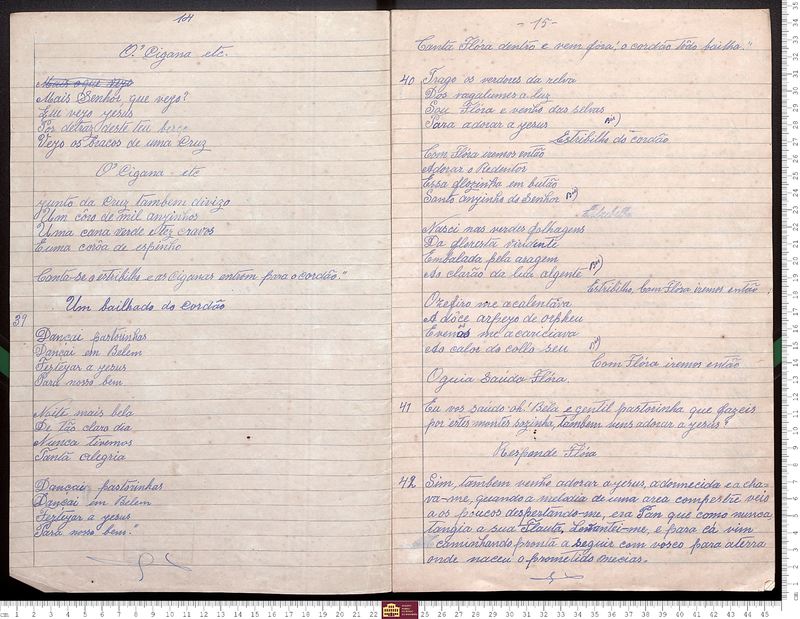 14
O' Cigana etc.
Mais o que vejo
Mais Senhor, que vejo?
Eu vejo yesus
Pos detraz deste teu berço
Vejo os bracos de uma Cruz
O' Cigana - etc
yunto da Cruz tambem divizo
Um côro de mil anyinhos
Uma cana verde e trez cravos
E uma corôa de espinho
Canta-se o estribilho e as Ciganas entrem para o cordão."
Um bailhado do Cordão
39
Dançai pastorinhas
Dançai em Belem
Festeyar a yesus
Para nosso bem
Noite mais bela
De tão claro dia
Nunca tivemos
Tanta alegria
Dançai pastorinhas
Dançai em Belem
Festeyar a yesus
Para nosso bem."
- 15 -
Canta Flóra dentro e vem fora; o cordão todo bailha."
40 Trago os verdores da relva
Dos vagalumes a luz
Sou Flóra e venho das selvas
Para adorar a yesus bis)
Estribilho do cordão
Com Flóra iremos então
Adorar o Redentor
Essa flozinha em butão
Santo anyinho do Senhor bis)
Estribilho
Nasci nas verdes folhagens
Da floresta viridante
Embalada pela aragem
Ao clarão da lua algente bis)
Estribilho, Com Flóra iremos então
O zefiro me acalentava
A dôce arpezo de orpheu
E venus me acariciava
Ao calor do collo seu bis)
Com Flóra iremos então
O guia Saúda Flóra.
41 Eu vos saúdo oh! Bela e gentil pastorinha que fazeis
por estes montes sozinha, tambem vens adorar a yesus?
Responde Flóra
42 Sim, tambem venho adorar a yesus, adormecida e acha-
va-me, quando a melodia de uma area campestre veio
a os poucos despertando-me, era Pan que como nunca
tangia a sua Flauta, Levantei-me, e para cá vim
caminhando pronta a seguir com vosco para a terra
onde naceu o prometido mecias.